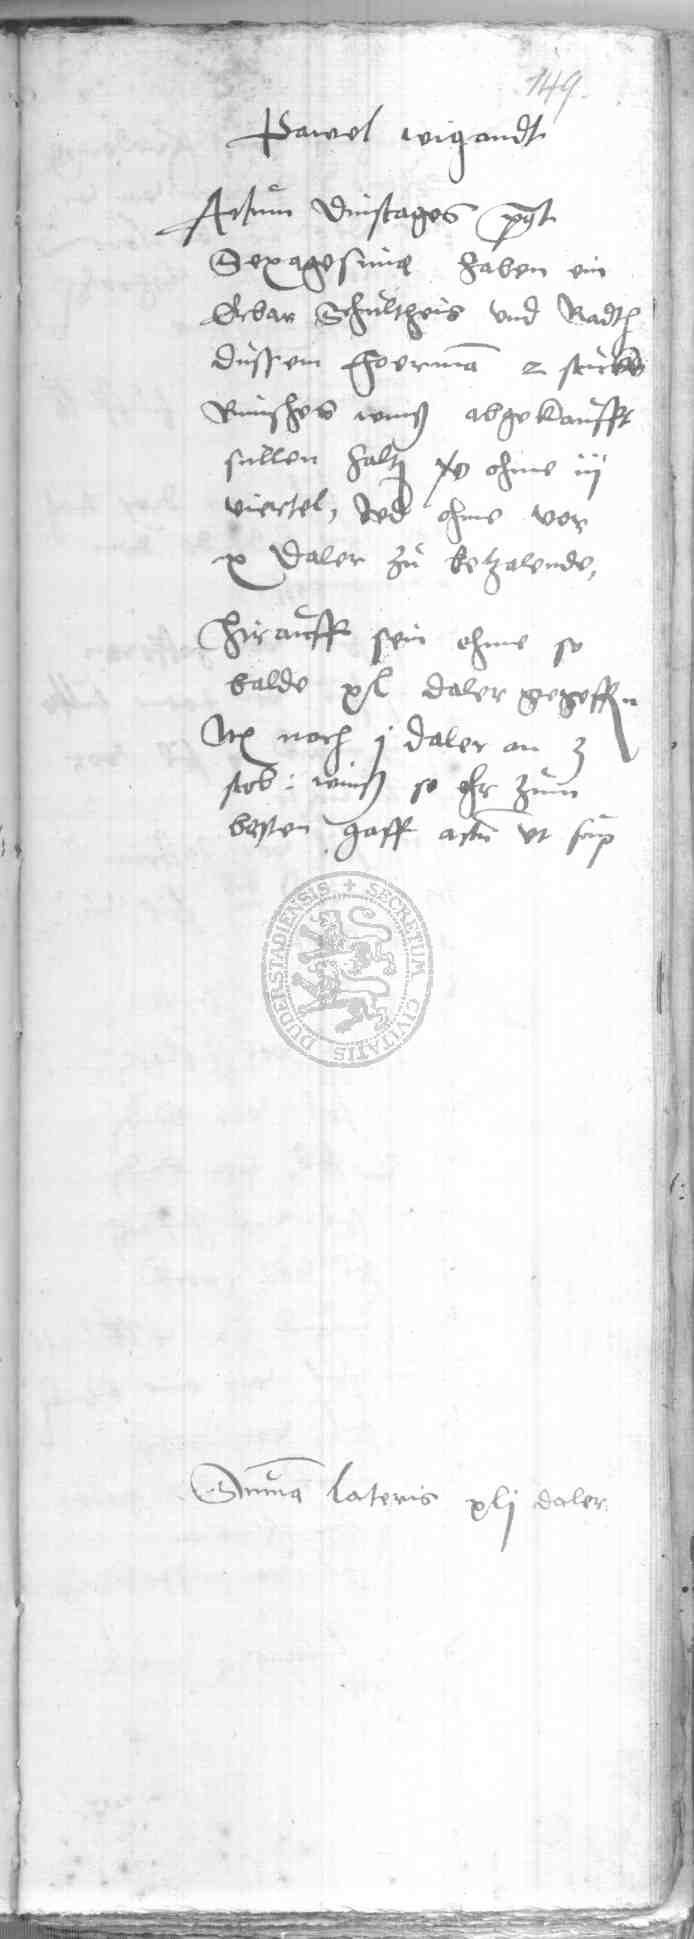 149.
Pawel wigandt
Actum Dinstages pgt
Sexagesima haben ein
Erbar Schultheis und Radth
dussem Fhoerma 2 stucke
Rinsches weins abgekaufft
sullen halt ohme iij
viertel, Jed ohme vor
x daler zu betzalende,
Hirauff sein ohme so
balde xl daler gegeffn
Itz noch j daler an 3
stob: weins so ehr zum
besten gaff actu ut sup
SECRETUM CIVITATIS DUDERSTADIENSIS
Summa lateris xlj daler